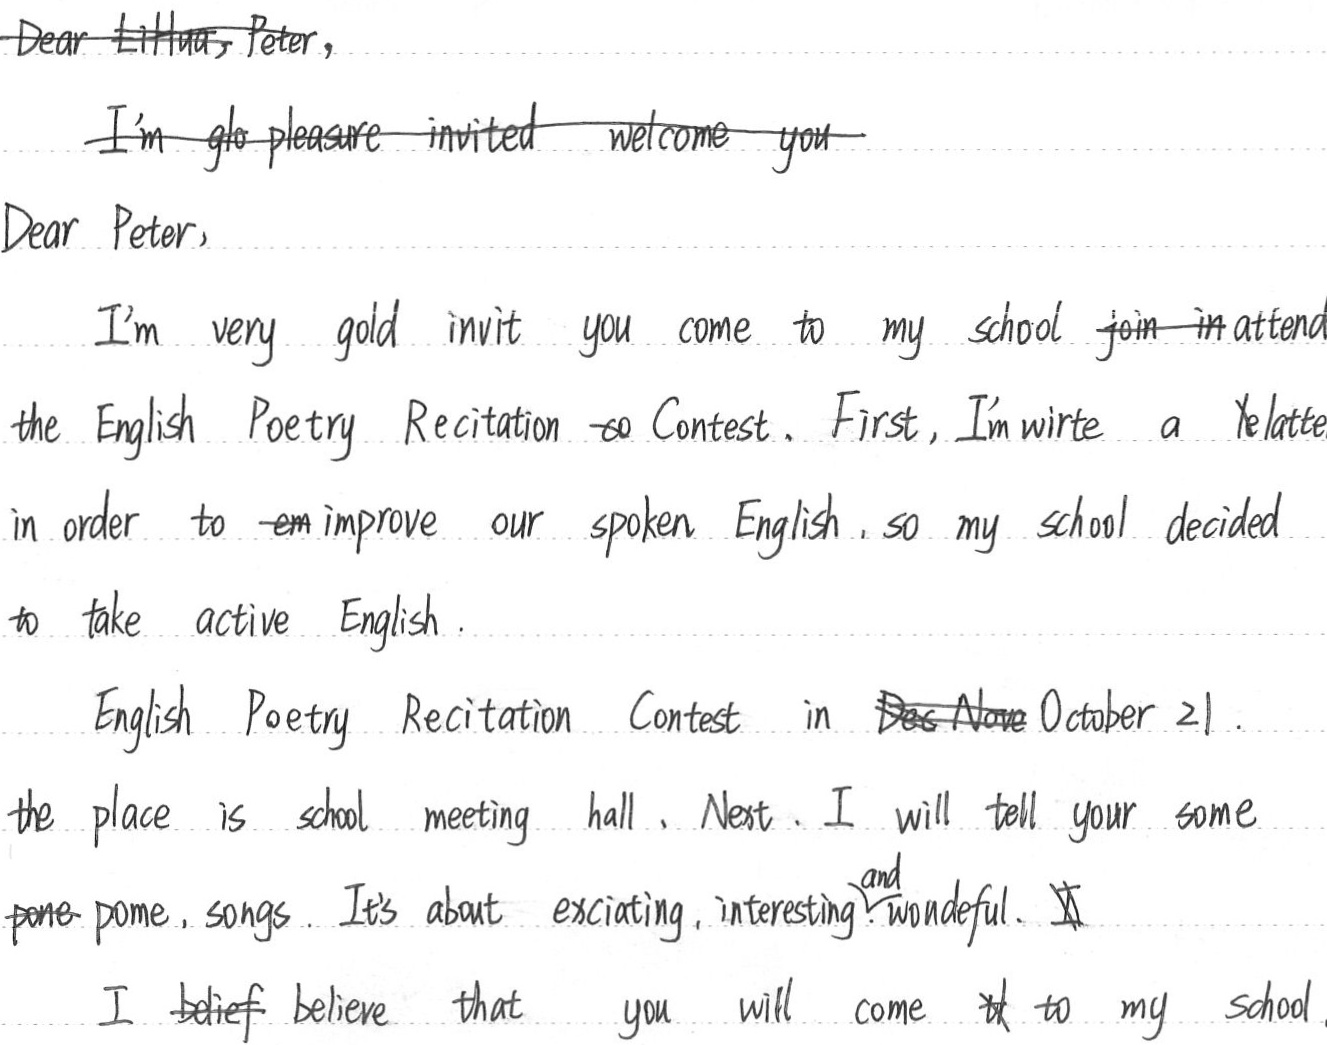 Dear LiHua, Peter,
I'm glo pleasure invited welcome you
Dear Peter,
I'm very gold invit you come to my school join in attend
the English Poetry Recitation so Contest. First, I'm wirte a latte
in order to em improve our spoken English. so my school decided
to take active English.
English Poetry Recitation Contest in Dec Nove October 21.
the place is school meeting hall. Next. I will tell your some
pone pome, songs. It's about exciating, interesting and wondeful.
I belief believe that you will come to my school.